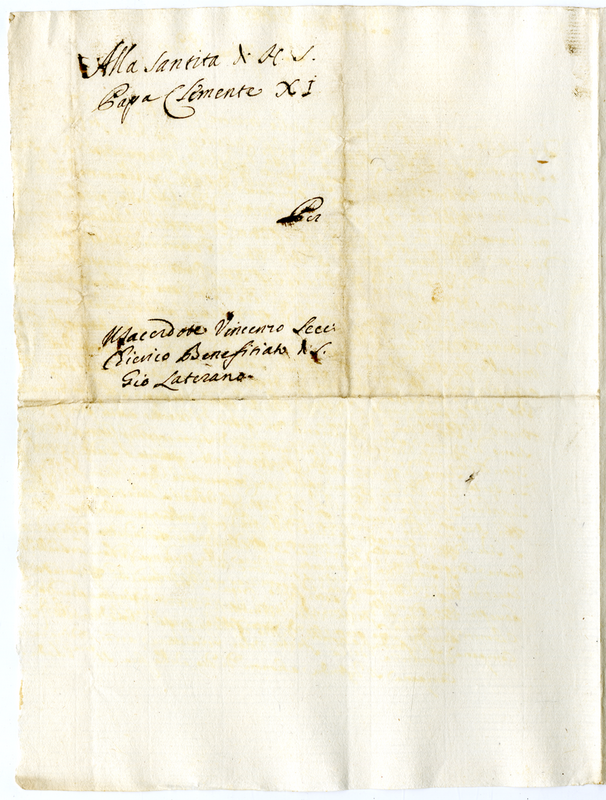 Alla Santita di N. S.
Papa Clemente XI
Per
Il Sacerdote Vincenzo
Chierico Benefitiato di S.
Gio Laterano